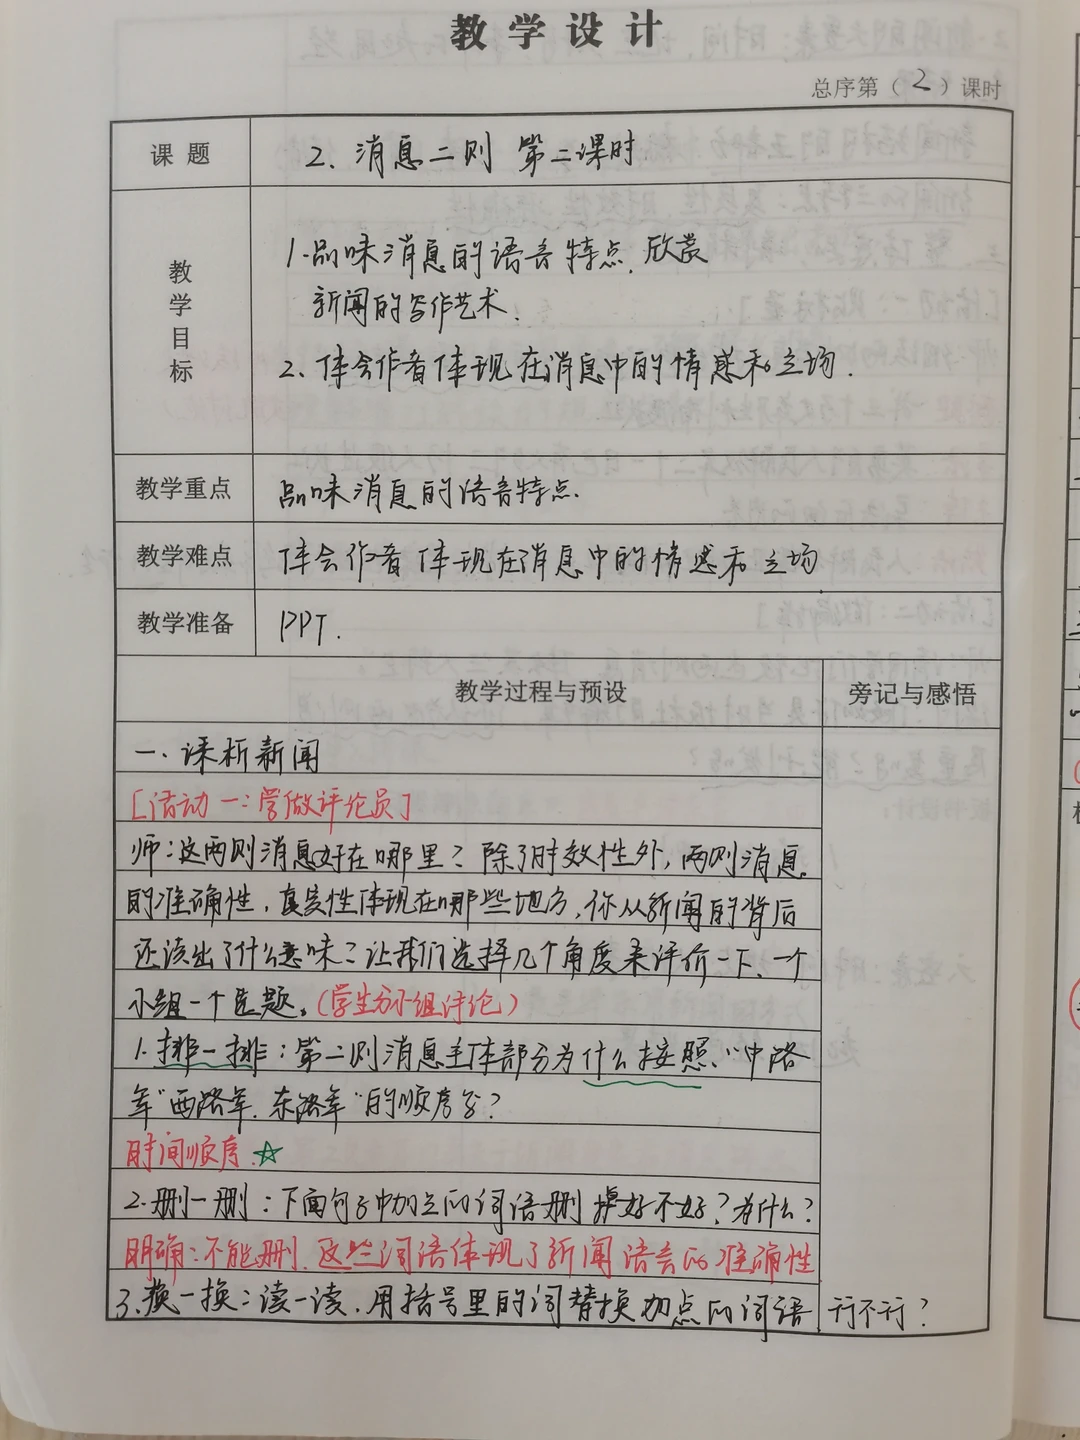 教学设计
总序第（2）课时
课题
2、消息二则 第二课时
教学目标
1.品味消息的语言特点、欣赏
新闻的写作艺术.
2、体会作者体现在消息中的情感和立场.
教学重点
品味消息的语言特点.
教学难点
体会作者体现在消息中的情感和立场
教学准备
PPT.
教学过程与预设
旁记与感悟
一、课析新闻
[活动一：学做评论员]
师：这两则消息好在哪里？除了时效性外，两则消息
的准确性，真实性体现在哪些地方，你从新闻的背后
还读出了什么意味？让我们选择几个角度来评价一下、一个
小组一个选题。（学生分小组讨论）
1.排一排：第二则消息主体部分为什么按照“中路
军”西路军、东路军”的顺序写？
时间顺序.☆
2.删一删：下面句子中加点的词语删掉好不好？为什么？
明确：不能删.这些词语体现了新闻语言的准确性
3.换一换：读一读.用括号里的词替换加点的词语行不行？